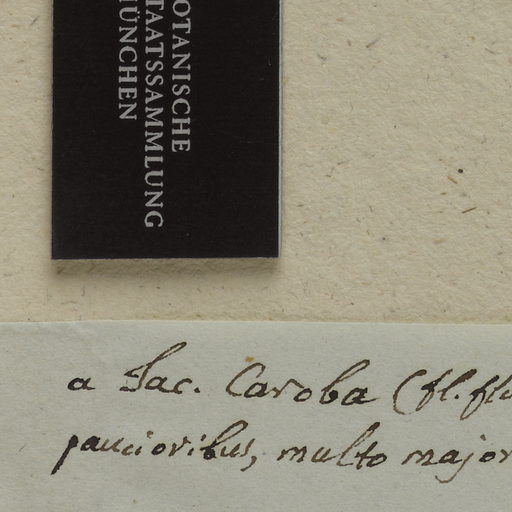 OTANISCHE
TAATSSAMMLUNG
ÜNCHEN
a Jac. Caroba (fl. flu
paucioribus, multo major